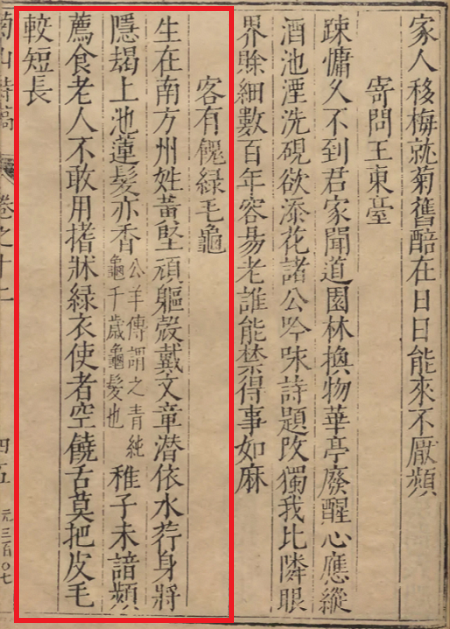 家人移梅就菊舊醅在日日能來不厭頻
寄問王東臺
踈慵久不到君家聞道園林換物華亭廢醒心應縱
酒池湮洗硯欲添花諸公吟咏詩題改獨我比隣眼
界賒細數百年容易老誰能禁得事如麻
客有餽綠毛龜
生在南方州姓黃堅頑軀殼戴文章潜依水荇身將
隱朅上池蓮髮亦香公羊傳謂之青純龜千歲龜髮也稚子未諳頻
薦食老人不敢用搘牀綠衣使者空饒舌莫把皮毛
較短長
山詩稿
卷之十二
四五
元三百〇七